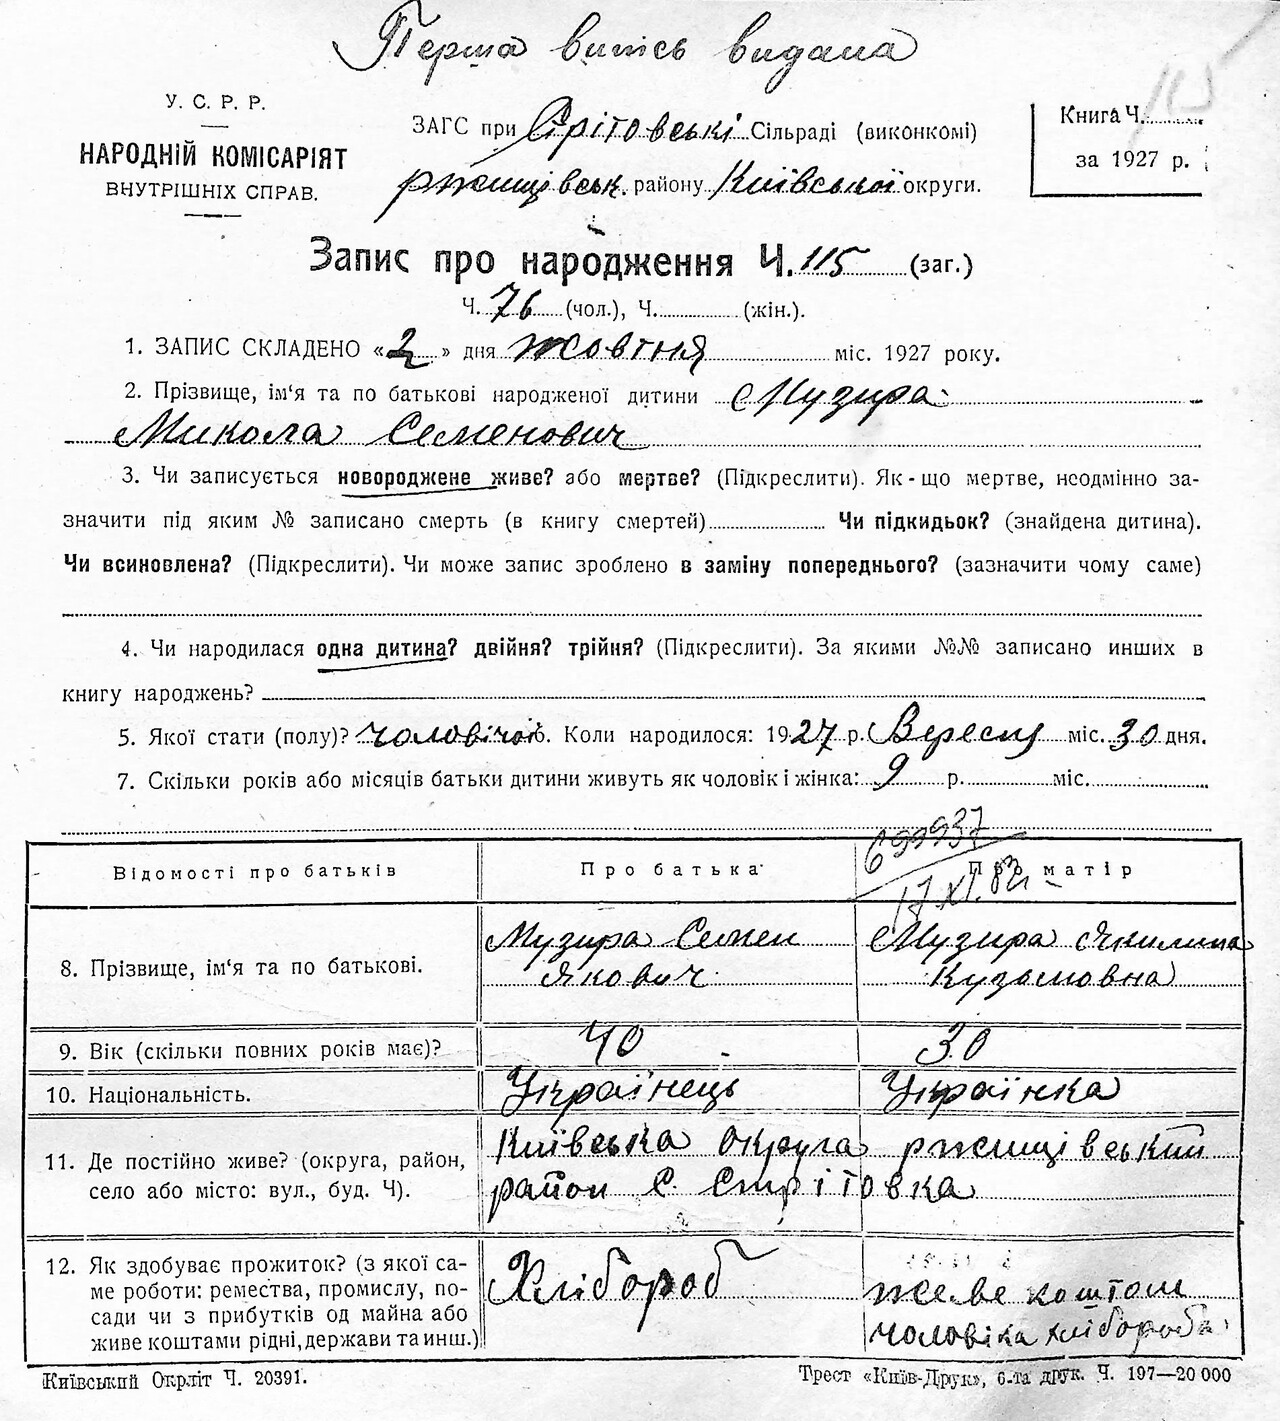 Перша випись видана
У. С. Р. Р.
НАРОДНІЙ КОМІСАРІЯТ
ВНУТРІШНІХ СПРАВ.
ЗАГС при Стрітовські Сільраді (виконкомі)
ржищівськ. району Київської округи.
Книга Ч.
за 1927 р.
115
Запис про народження Ч. 115 (заг.)
Ч. 76 (чол.), Ч. (жін.).
1. ЗАПИС СКЛАДЕНО «2» дня жовтня міс. 1927 року.
2. Прізвище, ім‘я та по батькові народженої дитини Музира
Микола Семенович
3. Чи записується новороджене живе? або мертве? (Підкреслити). Як-що мертве, неодмінно за-
значити під яким № записано смерть (в книгу смертей) Чи підкидьок? (знайдена дитина).
Чи всиновлена? (Підкреслити). Чи може запис зроблено в заміну попереднього? (зазначити чому саме)
4. Чи народилася одна дитина? двійня? трійня? (Підкреслити). За якими №№ записано инших в
книгу народжень?
5. Якої стати (полу)? чоловічої 6. Коли народилося: 1927 р. Вересня міс. 30 дня.
7. Скільки років або місяців батьки дитини живуть як чоловік і жінка: 9 р. міс.
699937
17 XI. 83
Відомості про батьків Про батька Про матір
8. Прізвище, ім‘я та по батькові. Музира Семен Якович Музира Якилина Кузьмовна
9. Вік (скільки повних років має)? 40 30
10. Національність. Українець Українка
11. Де постійно живе? (округа, район, Київська округа ржищівський
село або місто: вул., буд. Ч). район с. Стрітовка
12. Як здобуває прожиток? (з якої са-
ме роботи: ремества, промислу, по-
сади чи з прибутків од майна або
живе коштами рідні, держави та инш.)
Хлібороб
живе коштом
чоловіка хлібороба
Київський Окрліт Ч. 20391.
Трест «Київ-Друк», 6-та друк. Ч. 197—20 000